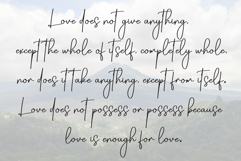 Love does not give anything,
except the whole of itself, completely whole,
nor does it take anything, except from itself.
Love does not possess or possess because
love is enough for love.